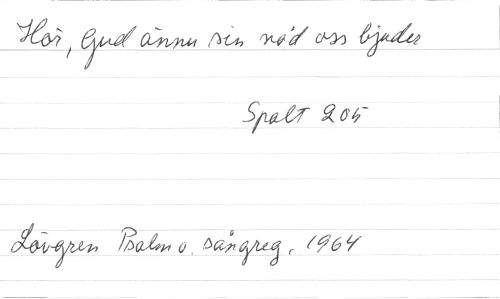 Hör, Gud ännu sin nåd oss bjuder
Spalt 205
Lövgren Psalm o. sångreg. 1964